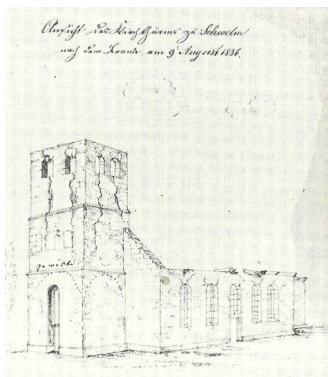 Ansicht des Kirchthurms zu Schwelm
nach dem Brande am 9 August 1836.